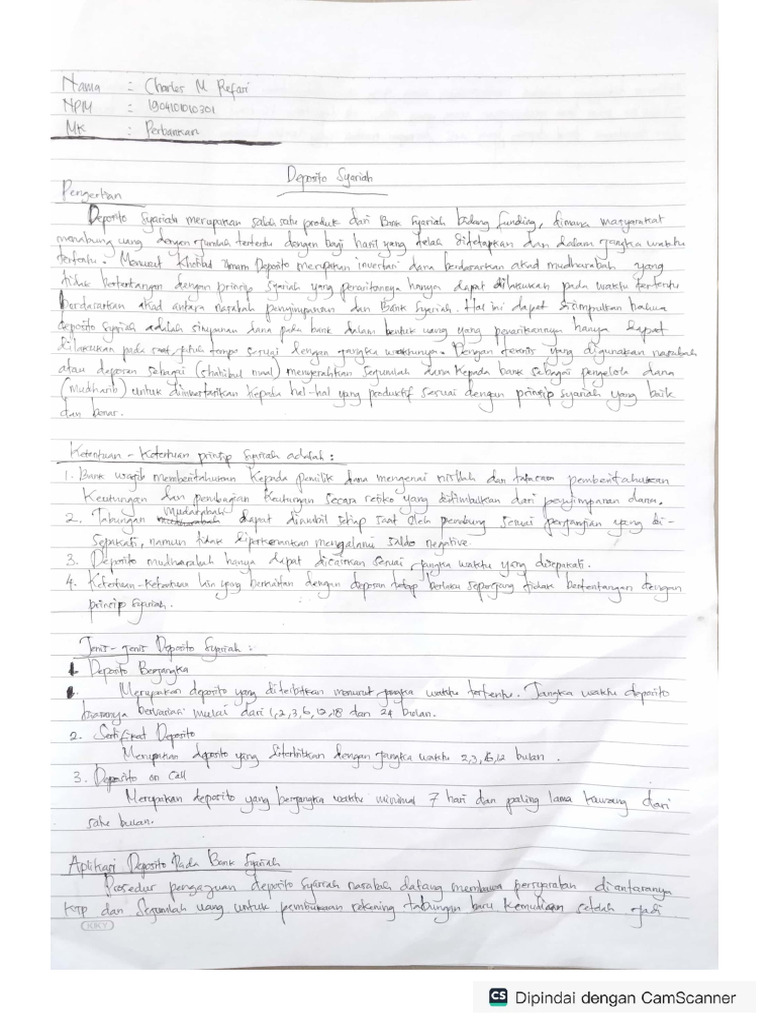 Nama : Charles M Refasi
NPM : 1904101010301
MK : Perbankan
Deposito Syariah
Pengertian
Deposito Syariah merupakan salah satu produk dari Bank Syariah bidang funding, dimana masyarakat
menabung uang dengan jumlah tertentu dengan bagi hasil yang telah ditetapkan dan dalam jangka waktu
tertentu. Menurut Khotibul Umam Deposito merupakan investasi dana berdasarkan akad mudharabah yang
tidak bertentangan dengan prinsip syariah yang penarikannya hanya dapat dilakukan pada waktu tertentu
berdasarkan akad antara nasabah penyimpanan dan Bank Syariah. Hal ini dapat disimpulkan bahwa
deposito syariah adalah simpanan dana pada bank dalam bentuk uang yang penarikannya hanya dapat
dilakukan pada saat jatuh tempo sesuai dengan jangka waktunya. Dengan teknis yang digunakan nasabah
atau deposan sebagai (shahibul maal) menyerahkan sejumlah dana kepada bank sebagai pengelola dana
(mudharib) untuk diinvestasikan kepada hal-hal yang produktif sesuai dengan prinsip syariah yang baik
dan benar.
Ketentuan - Ketentuan prinsip syariah adalah :
1. Bank wajib memberitahukan kepada pemilik dana mengenai nisbah dan tatacara pemberitahuan
keutungan dan pembagian keutungan secara resiko yang ditimbulkan dari penyimpanan dana.
2. Tabungan mudharabah dapat diambil setiap saat oleh penabung sesuai perjanjian yang di-
sepakati, namun tidak diperkenankan mengalami saldo negative.
3. Deposito mudharabah hanya dapat dicairkan sesuai jangka waktu yang disepakati.
4. Ketentuan-ketentuan lain yang berkaitan dengan deposan tetap berlaku sepanjang tidak bertentangan dengan
prinsip syariah.
Jenis-jenis Deposito Syariah :
1. Deposito Berjangka
Merupakan deposito yang diterbitkan menurut jangka waktu tertentu. Jangka waktu deposito
biasanya bervariasi mulai dari 1,2,3,6,12,18 dan 24 bulan.
2. Sertifikat Deposito
Merupakan deposito yang diterbitkan dengan jangka waktu 2,3,6,12 bulan.
3. Deposito on Call
Merupakan deposito yang berjangka waktu minimal 7 hari dan paling lama kurang dari
satu bulan.
Aplikasi Deposito Pada Bank Syariah
Prosedur pengajuan deposito syariah nasabah datang membawa persyaratan diantaranya
KTP dan sejumlah uang untuk pembukaan rekening tabungan baru kemudian setelah jadi
KIKY
CS Dipindai dengan CamScanner